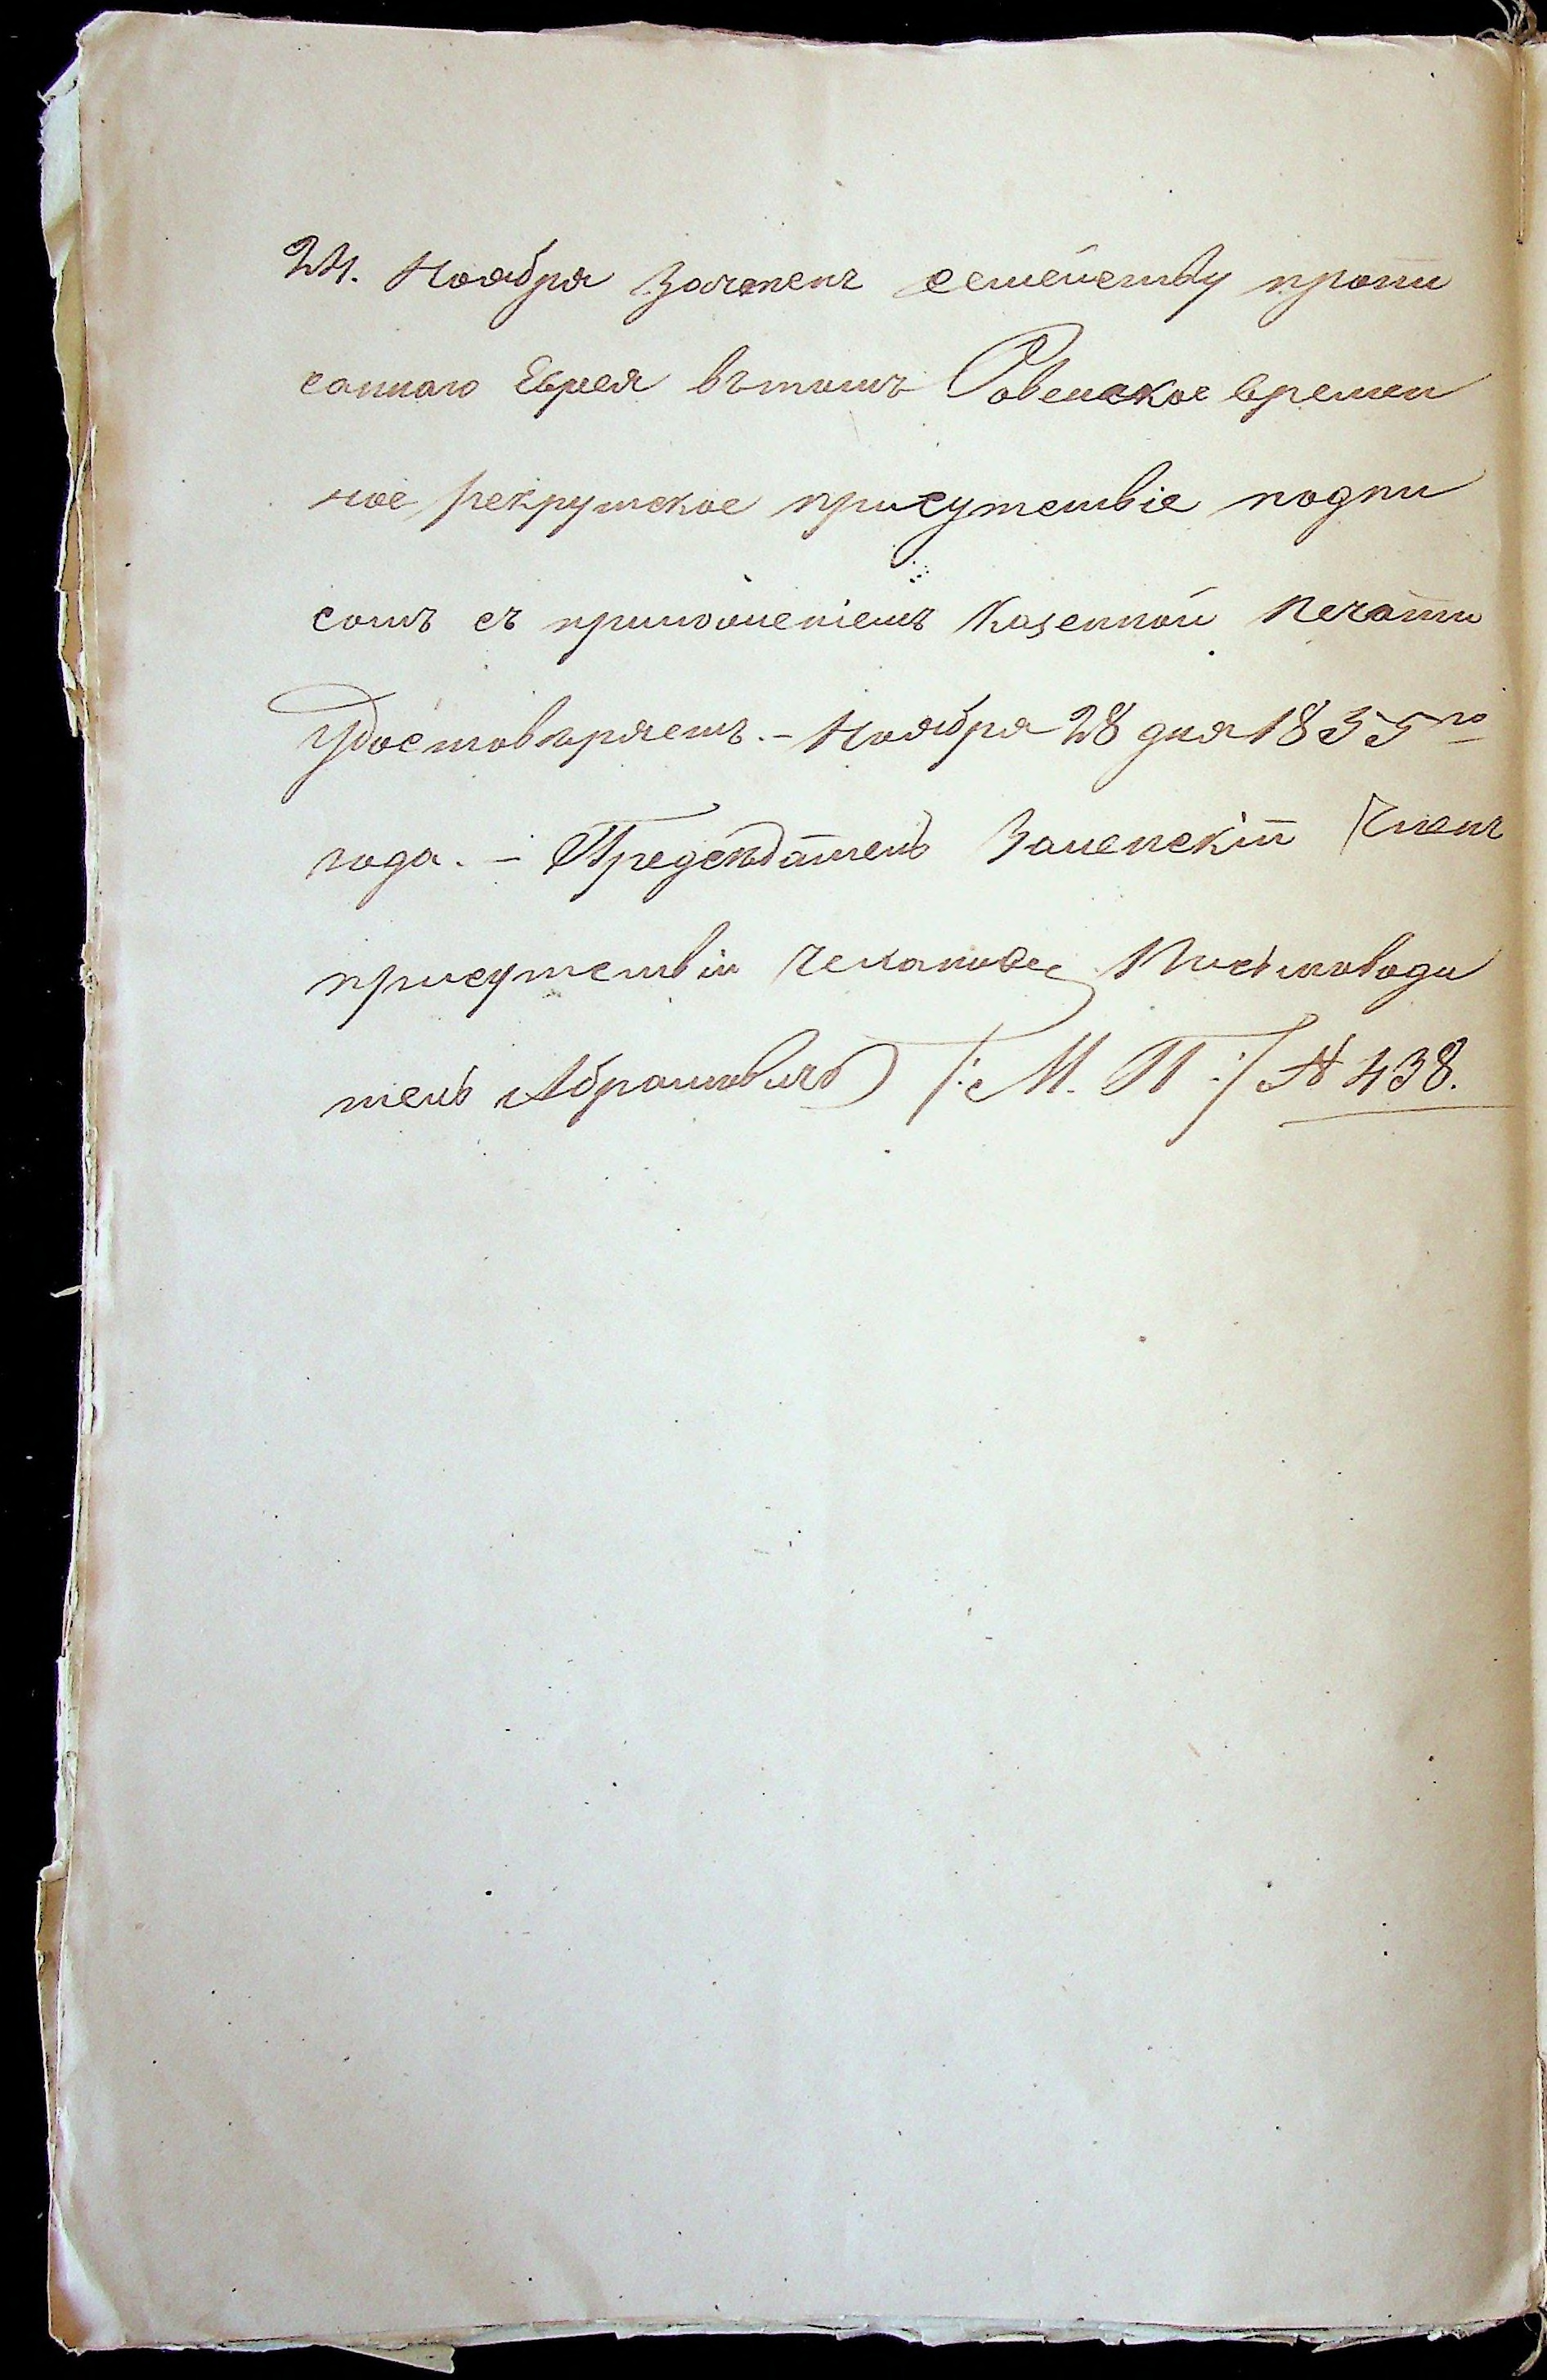 24. Ноября Зачтенъ семейству пропи
саннаго Еврея вътомъ Ровенское времен
ное рекрутское присутствіе подпи
сомъ съ приложеніемъ Казенной Печати
Удостовѣряетъ. - Ноября 28 дня 1855го
года. - Предсѣдатель Заленскій Членъ
присутствія Письмоводи
тель Абрамовичъ /: М. П :/ № 438.